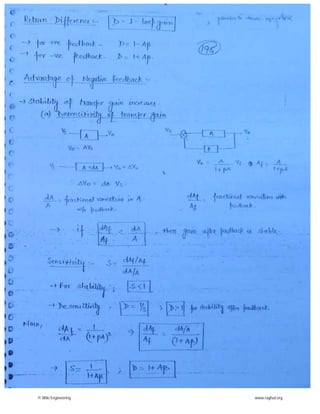 Return Difference :- D = 1 - loop gain
(195)
→ for +ve feedback - D = 1 - Aβ
→ for -ve feedback. D = 1 + Aβ.
Advantage of Negative feedback :-
→ Stability of transfer gain increases.
(a) Desensitivity of transfer gain
Vs A Vo
Vs A Vo
β
Vo = AVs
Vo = A/(1+βA) Vs Af = A/(1+βA)
Vs A+dA Vo + ΔVo
ΔVo = dA Vs
dA/A = fractional variation in A w/o feedback.
dAf/Af = fractional variation with feedback.
→ if dAf/Af < dA/A, then gain after feedback is stable.
Sensitivity :- S = (dAf/Af)/(dA/A)
→ For stability ; S < 1
→ Desensitivity, D = 1/S ; D > 1 for stability after feedback.
Now, dAf/dA = 1/(1+βA)² ⇒ dAf/Af = (dA/A)/(1+Aβ)
→ S = 1/(1+Aβ) ; D = 1 + Aβ
© Wiki Engineering www.raghul.org